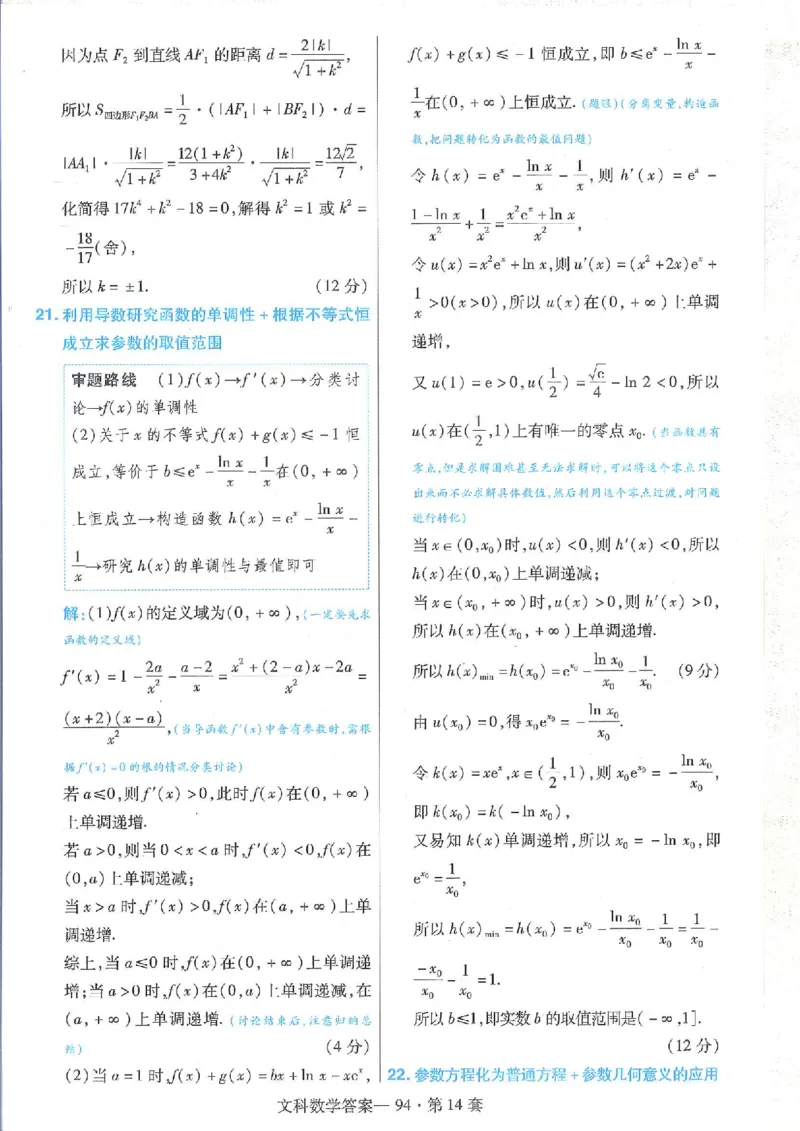 因为点 F₂ 到直线 AF₁ 的距离 d = 2|k|/√(1+k²),
所以 S四边形F₁F₂BA = 1/2 · (|AF₁| + |BF₂|) · d =
|AA₁| · |k|/√(1+k²) = 12(1+k²)/(3+4k²) · |k|/√(1+k²) = 12√2/7,
化简得 17k⁴ + k² - 18 = 0, 解得 k² = 1 或 k² =
-18/17(舍),
所以 k = ±1. (12 分)
21. 利用导数研究函数的单调性 + 根据不等式恒
成立求参数的取值范围
审题路线 (1)f(x)→f′(x)→分类讨
论→f(x)的单调性
(2)关于 x 的不等式 f(x) + g(x) ≤ -1 恒
成立,等价于 b ≤ eˣ - ln x/x - 1/x 在(0, +∞)
上恒成立→构造函数 h(x) = eˣ - ln x/x -
1/x→研究 h(x)的单调性与最值即可
解:(1)f(x)的定义域为(0, +∞),(一定要先求
函数的定义域)
f′(x) = 1 - 2a/x² - (a-2)/x = (x²+(2-a)x-2a)/x² =
(x+2)(x-a)/x²,(当导函数 f′(x)中含有参数时,需根
据 f′(x)=0 的根的情况分类讨论)
若 a≤0,则 f′(x) > 0,此时 f(x)在(0, +∞)
上单调递增.
若 a>0,则当 0<x<a 时,f′(x) <0,f(x)在
(0,a)上单调递减;
当 x>a 时,f′(x) >0,f(x)在(a, +∞)上单
调递增.
综上,当 a≤0 时,f(x)在(0, +∞)上单调递
增;当 a>0 时,f(x)在(0,a)上单调递减,在
(a, +∞)上单调递增. (讨论结束后,注意归纳总
结) (4 分)
(2)当 a=1 时,f(x) + g(x) = bx + ln x - xeˣ,
f(x) + g(x) ≤ -1 恒成立,即 b ≤ eˣ - ln x/x -
1/x 在(0, +∞)上恒成立. (题眼)(分离变量,构造函
数,把问题转化为函数的最值问题)
令 h(x) = eˣ - ln x/x - 1/x,则 h′(x) = eˣ -
(1-ln x)/x² + 1/x² = (x²eˣ+ln x)/x²,
令 u(x) = x²eˣ + ln x,则 u′(x) = (x²+2x)eˣ +
1/x > 0(x>0),所以 u(x)在(0, +∞)上单调
递增,
又 u(1) = e > 0,u(1/2) = √e/4 - ln 2 < 0,所以
u(x)在(1/2,1)上有唯一的零点 x₀. (当函数具有
零点,但是求解困难甚至无法求解时,可以将这个零点只设
出来而不必求解具体数值,然后利用这个零点过渡,对问题
进行转化)
当 x∈(0,x₀)时,u(x) <0,则 h′(x) <0,所以
h(x)在(0,x₀)上单调递减;
当 x∈(x₀, +∞)时,u(x) >0,则 h′(x) >0,
所以 h(x)在(x₀, +∞)上单调递增.
所以 h(x)min = h(x₀) = eˣ⁰ - ln x₀/x₀ - 1/x₀. (9 分)
由 u(x₀) = 0,得 x₀eˣ⁰ = -ln x₀/x₀.
令 k(x) = xeˣ,x∈(1/2,1),则 x₀eˣ⁰ = -ln x₀/x₀,
即 k(x₀) = k(-ln x₀),
又易知 k(x)单调递增,所以 x₀ = -ln x₀,即
eˣ⁰ = 1/x₀,
所以 h(x)min = h(x₀) = eˣ⁰ - ln x₀/x₀ - 1/x₀ = 1/x₀ -
-x₀/x₀ - 1/x₀ = 1.
所以 b≤1,即实数 b 的取值范围是(-∞,1].
(12 分)
22. 参数方程化为普通方程 + 参数几何意义的应用
文科数学答案— 94 · 第 14 套